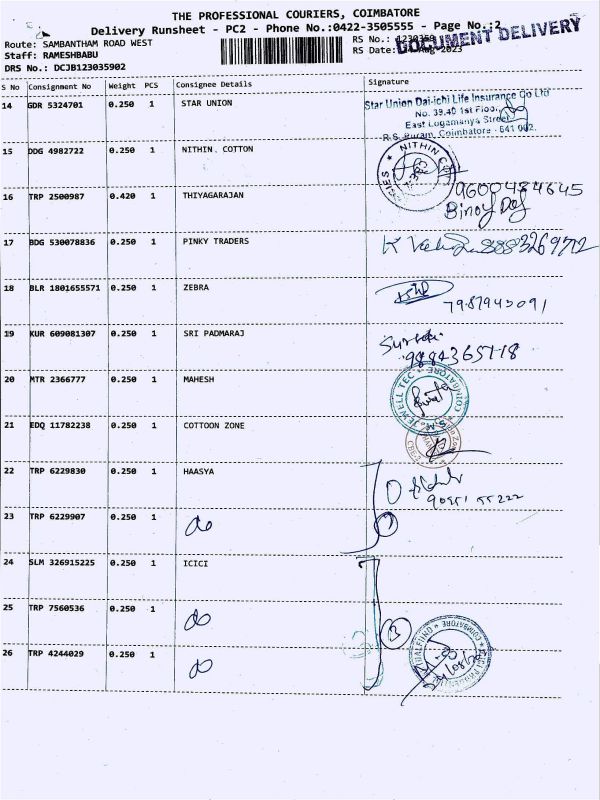 THE PROFESSIONAL COURIERS, COIMBATORE
Delivery Runsheet - PC2 - Phone No.:0422-3505555 - Page No.:2
DOCUMENT DELIVERY
Route: SAMBANTHAM ROAD WEST
RS No.:
Staff: RAMESHBABU
RS Date: Aug-2023
DRS No.: DCJB123035902
S No Consignment No Weight PCS Consignee Details Signature
14 GDR 5324701 0.250 1 STAR UNION
Star Union Dai-ichi Life Insurance Co Ltd
No. 39,40 1st Floor,
East Logamanya Street
R.S. Puram, Coimbatore - 641 002.
15 DDG 4982722 0.250 1 NITHIN. COTTON
NITHIN
16 TRP 2500987 0.420 1 THIYAGARAJAN
9600484645
Binoy Das
17 BDG 530078836 0.250 1 PINKY TRADERS
18 BLR 1801655571 0.250 1 ZEBRA
7987943091
19 KUR 609081307 0.250 1 SRI PADMARAJ
20 MTR 2366777 0.250 1 MAHESH
S.M. JEWELL TEC * COIMBATORE *
21 EDQ 11782238 0.250 1 COTTOON ZONE
22 TRP 6229830 0.250 1 HAASYA
23 TRP 6229907 0.250 1 do
24 SLM 326915225 0.250 1 ICICI
25 TRP 7560536 0.250 1 do
3
26 TRP 4244029 0.250 1 do
COIMBATORE